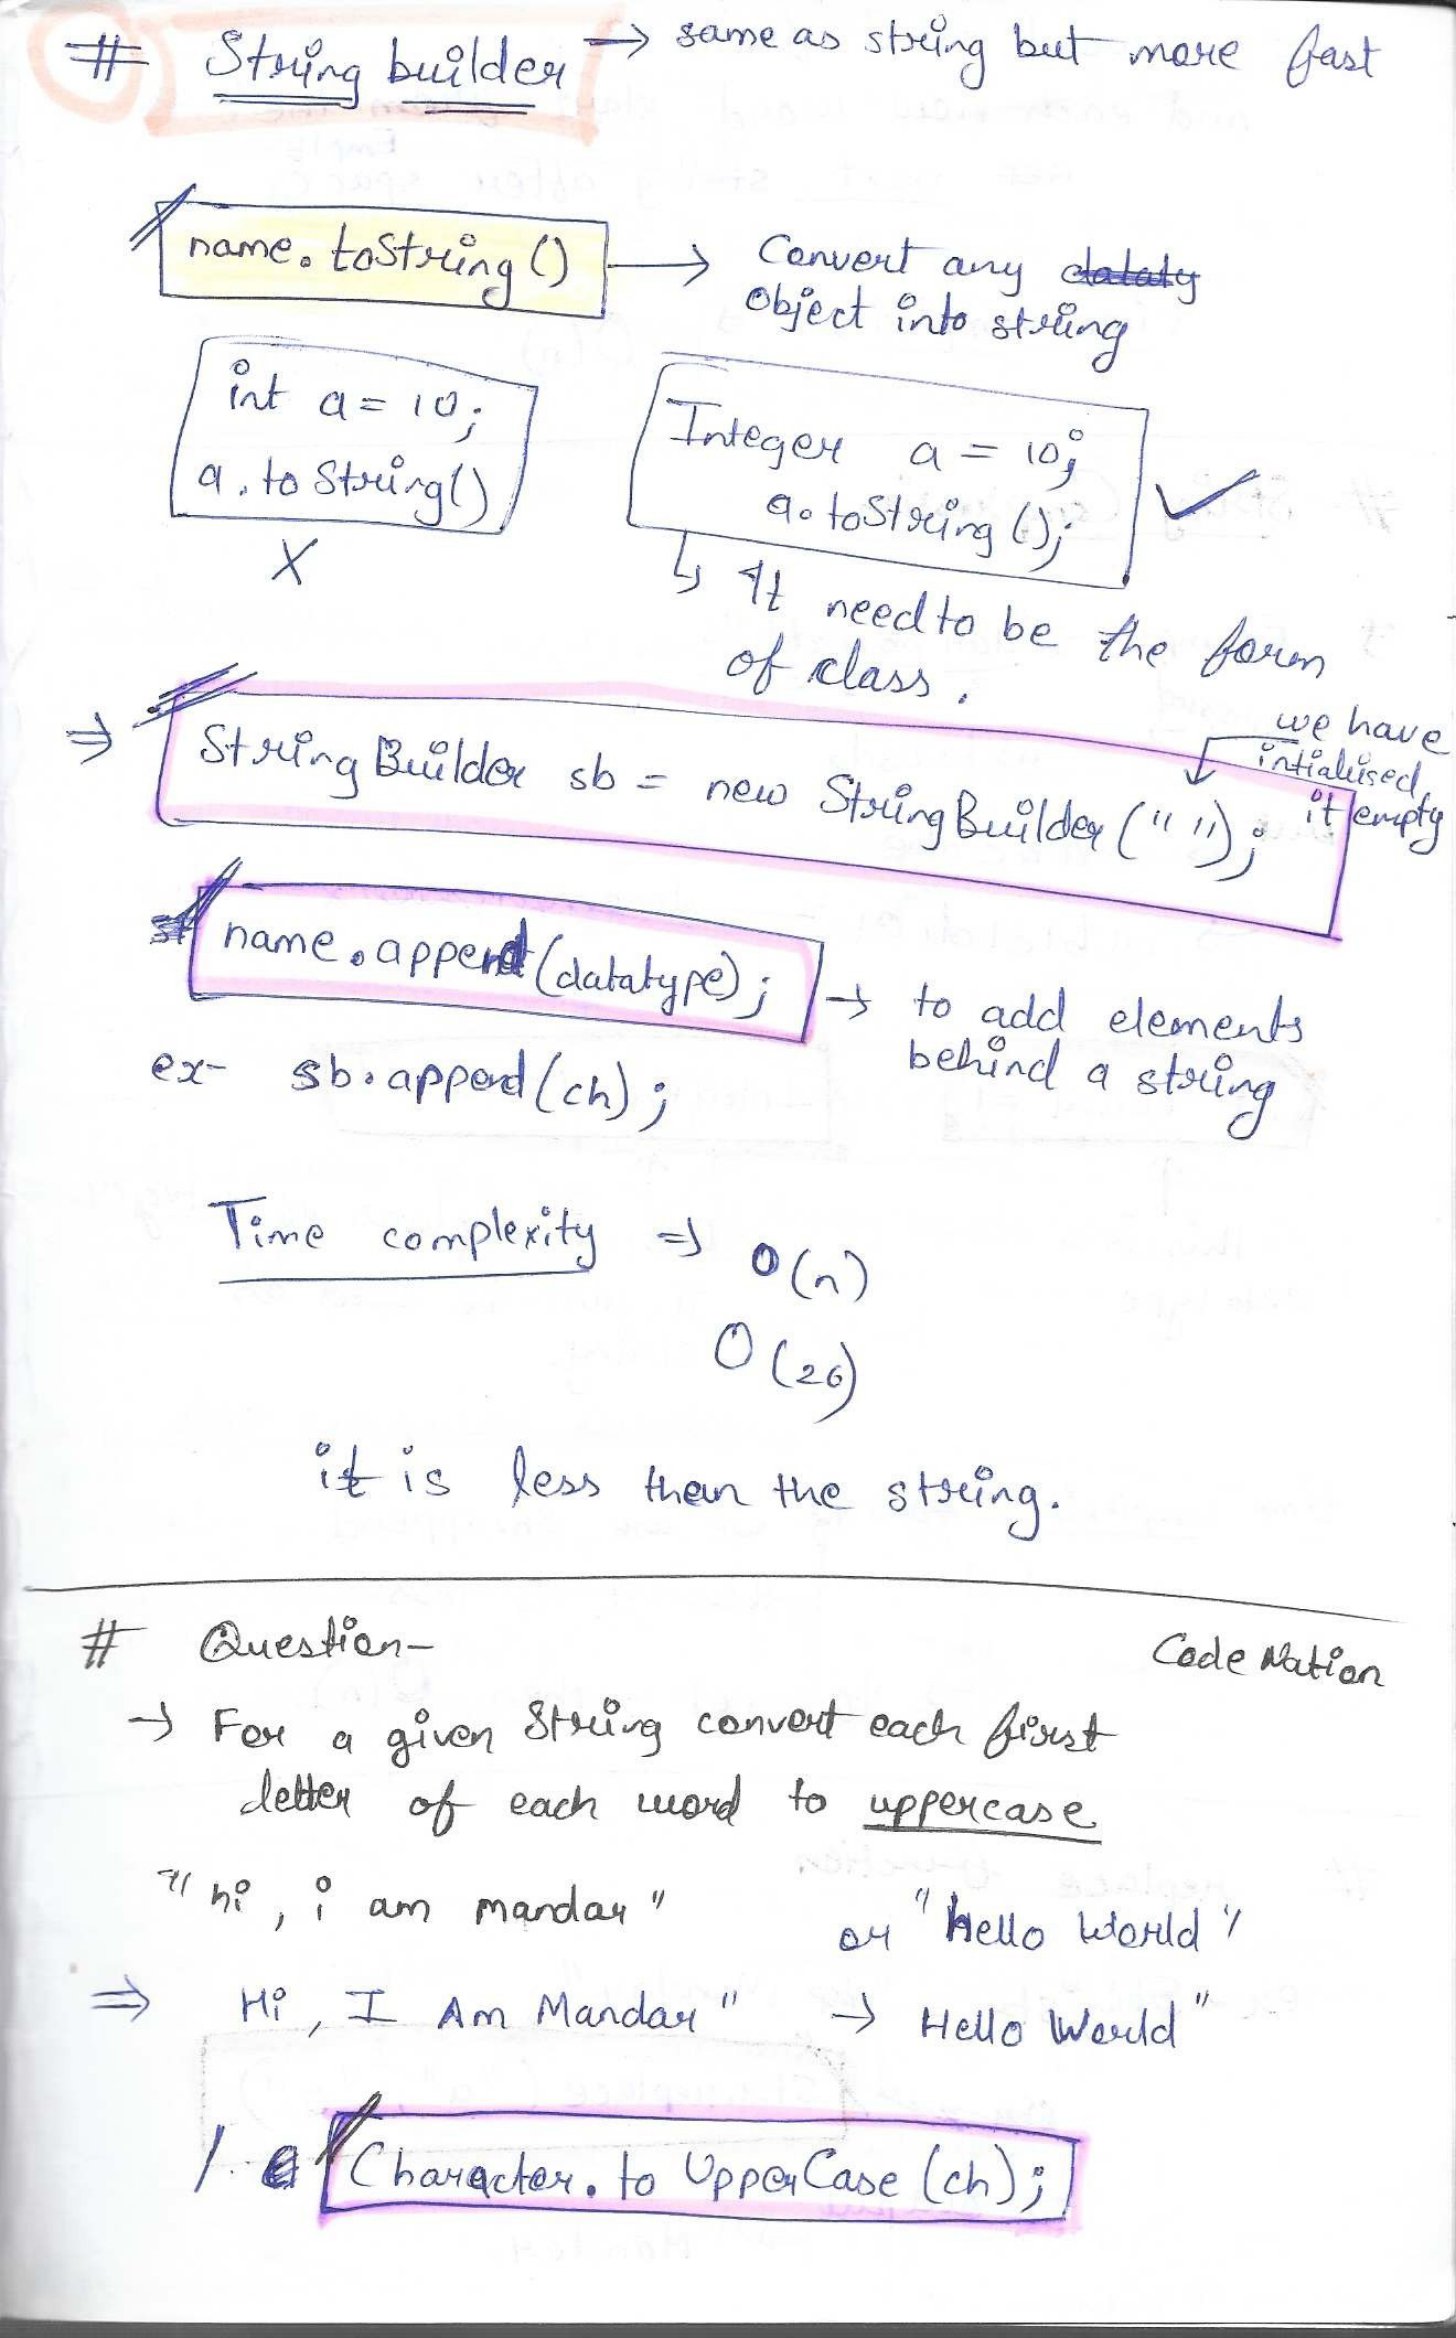 # String builder → same as string but more fast
name.toString() → Convert any dataty
Object into string
int a = 10;
a.toString()
X
Integer a = 10;
a.toString(); ✓
↳ It need to be the form
of class.
⇒ StringBuilder sb = new StringBuilder(" ");
we have
intialised
it empty
name.append(datatype); → to add elements
behind a string
ex- sb.append(ch);
Time complexity ⇒ O(n)
O(26)
it is less then the string.
# Question- Code Nation
→ For a given String convert each first
letter of each word to uppercase
"hi, i am mandar" or "hello World"
⇒ Hi, I Am Mandar" → Hello World"
/ Character.toUpperCase(ch);